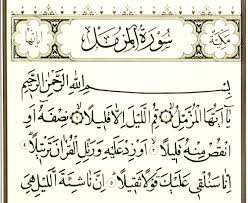 مكية سورة المزمل
بِسْمِ اللهِ الرَّحْمٰنِ الرَّحِيمِ
يَا أَيُّهَا الْمُزَّمِّلُ ۝ قُمِ اللَّيْلَ إِلَّا قَلِيلًا ۝ نِصْفَهُ أَوِ
انْقُصْ مِنْهُ قَلِيلًا ۝ أَوْ زِدْ عَلَيْهِ وَرَتِّلِ الْقُرْآنَ تَرْتِيلًا ۝
إِنَّا سَنُلْقِي عَلَيْكَ قَوْلًا ثَقِيلًا ۝ إِنَّ نَاشِئَةَ اللَّيْلِ هِيَ